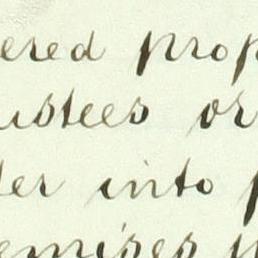 ered prop
ustees or
der into p
emises u